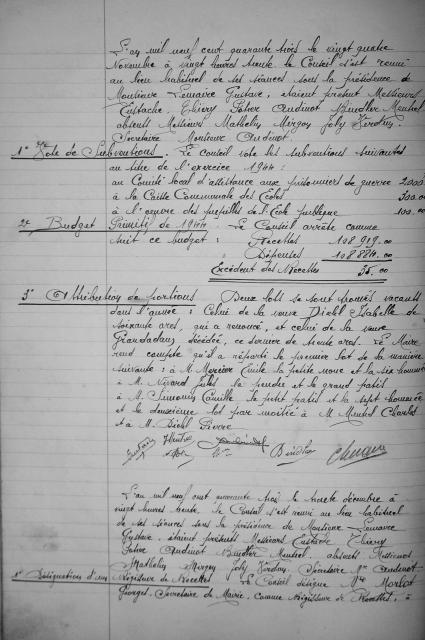 L'an mil neuf cent quarante trois le vingt quatre
Novembre à vingt heures trente le Conseil s'est réuni
au lieu habituel de ses séances sous la présidence de
Monsieur Lemaire Gustave, étaient présents Messieurs
Eustache, Thiéry Audinot Mentrel
absents Messieurs Mathelin Joly
Secrétaire Monsieur Audinot.
1° Vote de Subventions. Le Conseil vote les subventions suivantes
au titre de l'exercice 1944 :
au Comité local d'assistance aux prisonniers de guerre 2000
à la Caisse Communale des Ecoles 300.00
à l'œuvre des pupilles de l'Ecole publique 100.00
2° Budget Primitif de 1944. Le Conseil arrête comme
suit ce budget : Recettes 108 919.00
Dépenses 108 884.00
Excédent des Recettes 35.00
3° Attribution de portions Deux lots se sont trouvés vacants
dans l'année : Celui de la veuve Diehl Isabelle de
soixante ares, qui a renoncé, et celui de la veuve
Grandadam décédée, ce dernier de trente ares. Le Maire
rend compte qu'il a réparti le premier lot de la manière
suivante : à M. la petite noue et la six
à M. Jules la pendue et le grand patis
à M. Simonin Camille le petit patis et la sept
et le deuxième lot par moitié à M. Mentrel Charles
et à M. Diehl Pierre
L'an mil neuf cent quarante trois le trente décembre à
vingt heures trente le Conseil s'est réuni au lieu habituel
de ses séances sous la présidence de Monsieur Lemaire
Gustave, étaient présents Messieurs Eustache Thiéry
Audinot Mentrel. absents Messieurs
Mathelin Joly Secrétaire Mr Audinot
1° Désignation d'un Régisseur de Recettes Le Conseil désigne
Georges, Secrétaire de Mairie, comme Régisseur de Recettes, à